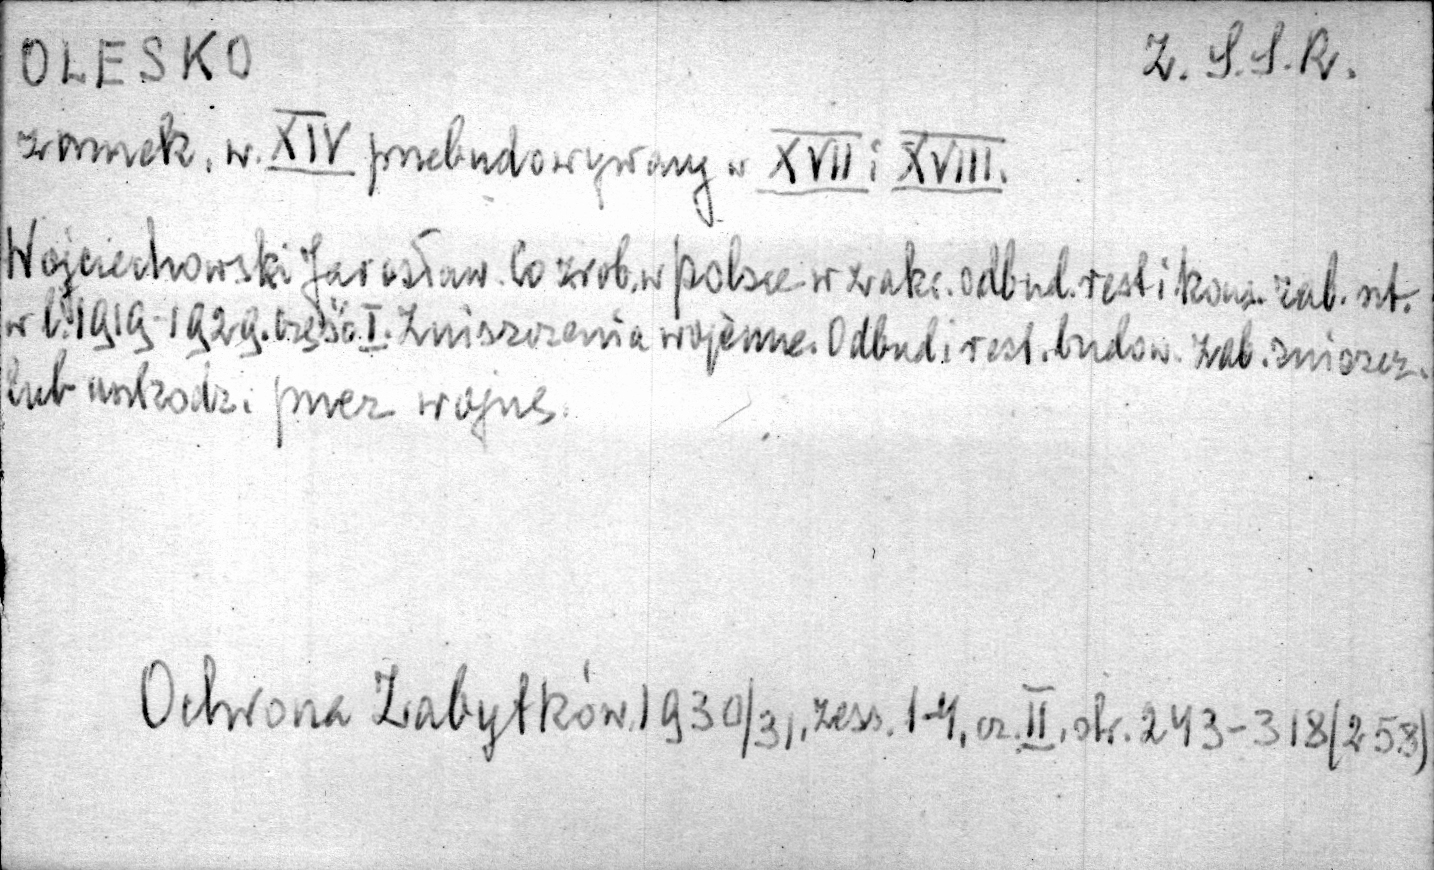 OLESKO
Z.S.S.R.
zamek, w. XIV przebudowywany w XVII i XVIII.
Wojciechowski Jarosław. Co zrob. w Polsce w zakr. odbud. rest i kons. zab. szt.
w l. 1919-1929. Część I. Zniszczenia wojenne. Odbud. i rest. budow. zab. zniszcz.
lub uszkodz. przez wojnę.
Ochrona Zabytków. 1930/31, zesz. 1-4, cz. II, str. 243-318 (258)